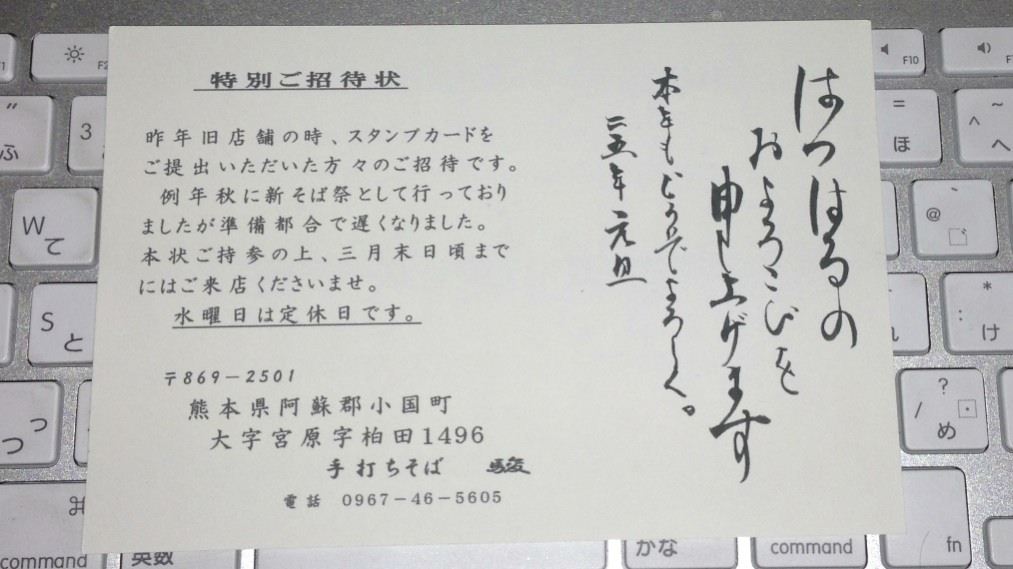 はつはるの
およろこびを
申し上げます
本年もどうぞよろしく。
二五年 元旦
特別ご招待状
昨年旧店舗の時、スタンプカードを
ご提出いただいた方々のご招待です。
例年秋に新そば祭として行っており
ましたが準備都合で遅くなりました。
本状ご持参の上、三月末日頃まで
にはご来店くださいませ。
水曜日は定休日です。
〒869-2501
熊本県阿蘇郡小国町
大字宮原字柏田1496
手打ちそば 駿
電話 0967-46-5605
F2
F10
"
ふ
3
=
ほ
~
^
へ
W
て
@
S
と
*
:
け
つ
っ
?
/
め
command
英数
かな
command
fn